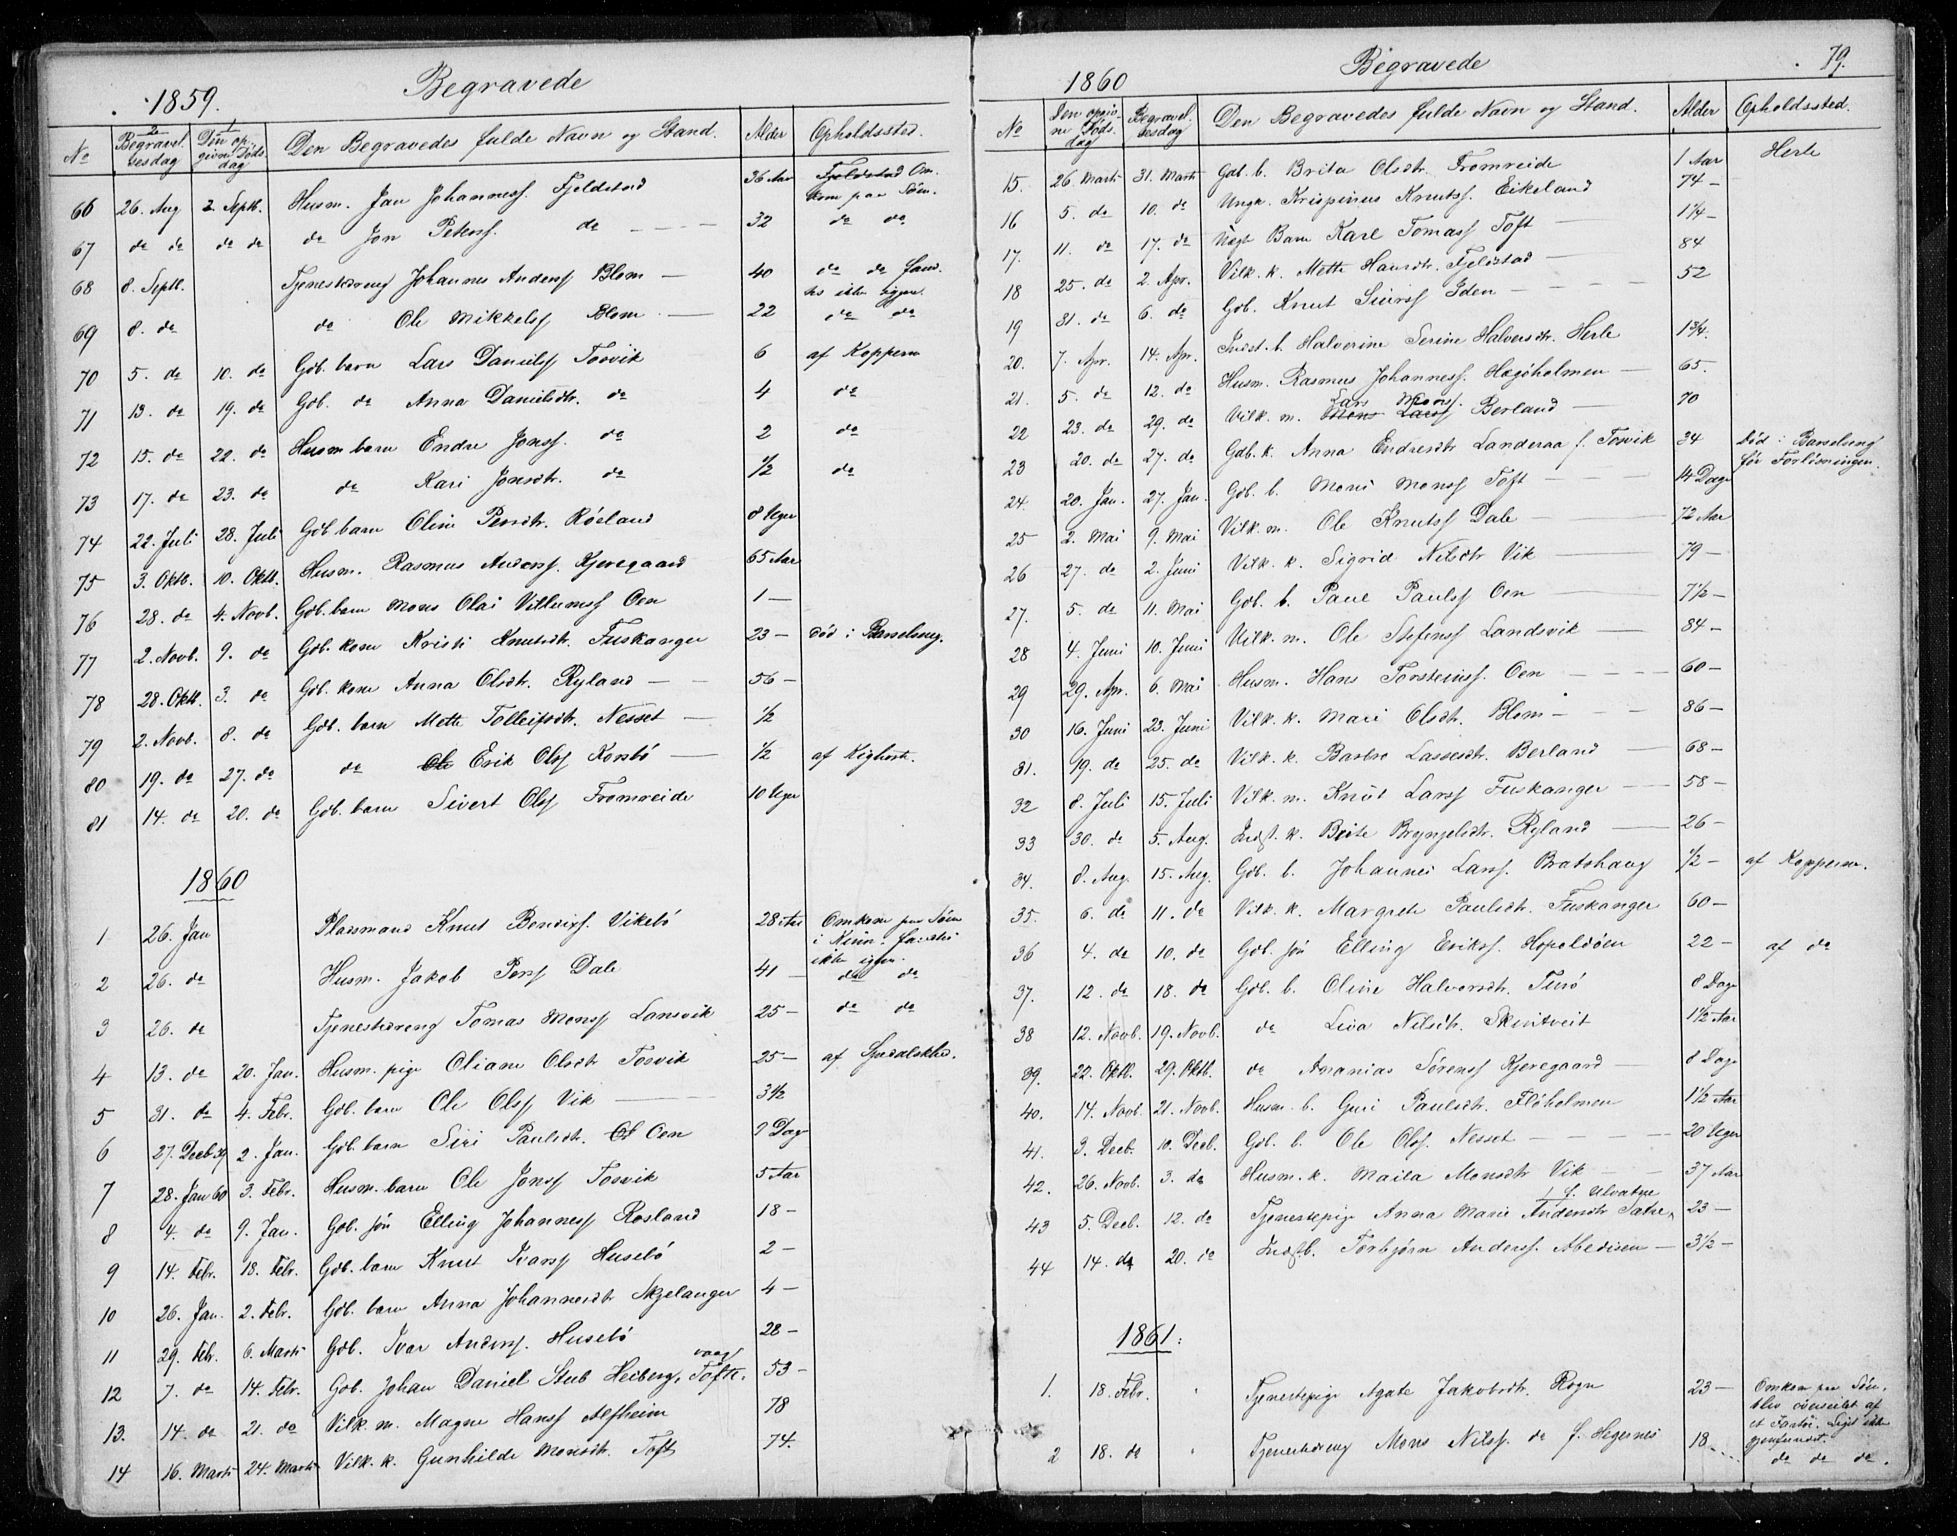 1859. Begravede
No | Begravelsesdag | Den opgivne Dødsdag | Den Begravedes fulde Navn og Stand. | Alder | Opholdssted.
66 26. Aug 2. Septb. Husm. Jan Johanness. Fjeldstad 36 Aar Fjeldstad Omkom paa Søen.
67 do do do do do Jon Peters. do 32 do do
68 8. Septb. Tjenestedreng Johannes Anderss Blom 40 do do fandtes ikke igjen.
69 8. do do Ole Mikkelss Blom 22 do do
70 5. do 10. do Gdb. barn Lars Danielss Tosvik 6 af Kopperne
71 13. do 19. do Gdb. do Anna Danielsdtr. do 4 do
72 15. do 22. do Husm. barn Endre Jonss. do 2 do
73 17. do 23. do do Kari Jonsdtr. do 1/2 do
74 22. Juli 28. Juli Gdb. barn Oline Persdtr. Røsland 8 Uger
75 3. Oktb. 10. Oktb. Husm. Rasmus Anderss. Kjeregaard 65 Aar
76 28. do 4. Novb. Gdb. barn Mons Olai Villumss Oen 1 —
77 2. Novb. 9. do Gdb. kone Kristi Knutsdtr. Fuskanger 23 — død i Barselseng.
78 28. Oktb. 3. do Gdb. kone Anna Olsdtr. Ryland 56 —
79 2. Novb. 8. do Gdb. barn Mette Tolleifsdtr. Nesset 1/2
80 19. do 27. do do Ole Erik Olss Korsbø 1/2 af Kighost.
81 14. do 20. do Gdb. barn Sivert Olss Fromreide 10 Uger
1860
1 26. Jan Pladsmand Knut Bendixs. Vikebø 28 Aar Omkom paa Søen
i Kinn. fandtes
ikke igjen.
2 26. do Husm. Jakob Perss Dale 41 — do do
3 26. do Tjenestedreng Tomas Monss Lansvik 25 — do do
4 13. do 20. Jan. Husm. pige Oliane Olsdtr Tosvik 25 — af Spedalskhd.
5 31. do 4. Febr. Gdb. barn Ole Olss Vik 3 1/2
6 27. Decb 59 2. Jan. Gdb. barn Siri Paulsdtr. Oen 9 Dage
7 28. Jan 60 3. Febr. Husm. barn Ole Jonss Tosvik 5 Aar
8 4. do 9. Jan. Gdb. søn Elling Johanness Røsland 18 —
9 14. Febr. 18. Febr. Gdb. barn Knut Ivarss Husebø 2 —
10 26. Jan. 2. Febr. Gdb. barn Anna Johannesdtr Skjelanger 4 —
11 29. Febr. 6. Marts Gdb. Ivar Anderss. Husebø 28 —
12 7. do 14. Febr. Gdb. Johan Daniel Stub Heiberg, Tofte. 53 —
13. 14. do 21. do Vilk. m. Magne Hanss Alfheim 78
14 16. Marts 24. Marts Vilk. k. Gunhilde Monsdtr. Toft 74.
1860 Begravede 79.
No | Den opgivne Dødsdag | Begravelsesdag | Den Begravedes fulde Navn og Stand. | Alder | Opholdssted.
15. 26. Marts 31. Marts Gdb. b. Brita Olsdtr. Fromreide 1 Aar Herle
16 5. do 10. do Ungk. Krispinus Knutss. Eikeland 74 —
17. 11. do 17. do Uægt Barn Karl Tomass Toft 1 1/4 —
18 25. do 2. Apr. Vilk. k. Mette Hansdtr. Fjeldstad 84
19 31. do 6. do Gdb. Knut Siurss Iden 52
20. 7. Apr. 14. Apr. Indst. b. Halverine Serine Halversdtr. Herle 1 3/4.
21. 5. do 12. do Husm. Rasmus Johanness. Hægøholmen 65.
22 23. do 29. do Vilk. m. Lars Monss. Berland 70
23 20. do 27. do Gdb. k. Anna Endresdtr Landeraa f. Tosvik 34 død i Barselseng før Forløsningen.
24. 20. Jan. 27. Jan. Gdb. b. Mons Monss Toft 14 Dage
25 2. Mai 9. Mai Vilk. m. Ole Knutss Dale 72 Aar
26 27. do 2. Juni Vilk. k. Sigrid Nilsdtr Vik 79 —
27. 5. do 11. Mai Gdb. b. Paul Paulss Oen 7 1/2 —
28 4. Juni 10. Juni Vilk. m. Ole Stefenss Landsvik 84 —
29 29. Apr. 6. Mai Husm. Hans Torsteinss. Oen 60 —
30 16. Juni 23. Juni Vilk. k. Mari Olsdtr. Blom 86 —
31. 19. do 25. do Vilk. k. Barbro Lassesdtr. Berland 68 —
32 8. Juli 15. Juli Vilk. m. Knut Larss Fuskanger 58 —
33 30. do 5. Aug. Indst. k. Brite Brynjelsdtr. Ryland 26 —
34. 8. Aug. 15. Aug. Gdb. b. Johannes Larss. Bratshaug 1/2 — af Kopperne.
35. 6. do 11. do Vilk. k. Margrete Paulsdtr. Fuskanger 60 —
36 4. do 10. do Gdb. søn Elling Erikss. Hopoldsøen 22 — af do
37. 12. do 18. do Gdb. b. Oline Halversdtr. Turø 8 Dage
38 12. Novb. 19. Novb. do Liva Nilsdtr. Skintveit 1 1/2 Aar
39. 22. Oktb. 29. Oktb. do Ananias Sørenss Kjeregaard 8 Dage
40. 14. Novb. 21. Novb. Husm. b. Guri Paulsdtr. Floholmen 1 1/2 Aar
41. 3. Decb. 10. Decb. Gdb. b. Ole Olss. Nesset 20 Uger
42. 26. Novb. 3. do Husm. k. Maila Monsdtr Vik 37 Aar
43 5. Decb. 12. do Tjenestepige Anna Marie Andersdtr Sætre f. Ulvatne 23 —
44 14. do 20. do Indstb. Torbjørn Anderss. Abedisen 3 1/2 —
1861.
1. 18. Febr. Tjenestepige Agate Jakobsdtr. Rogn 23 — Omkom paa Søen.
blev overseilet af
et Fartøi. Liget ikke
gjenfundet.
2 18. do Tjenestedreng Mons Nilss. do f. Hegernes 18 do do do.